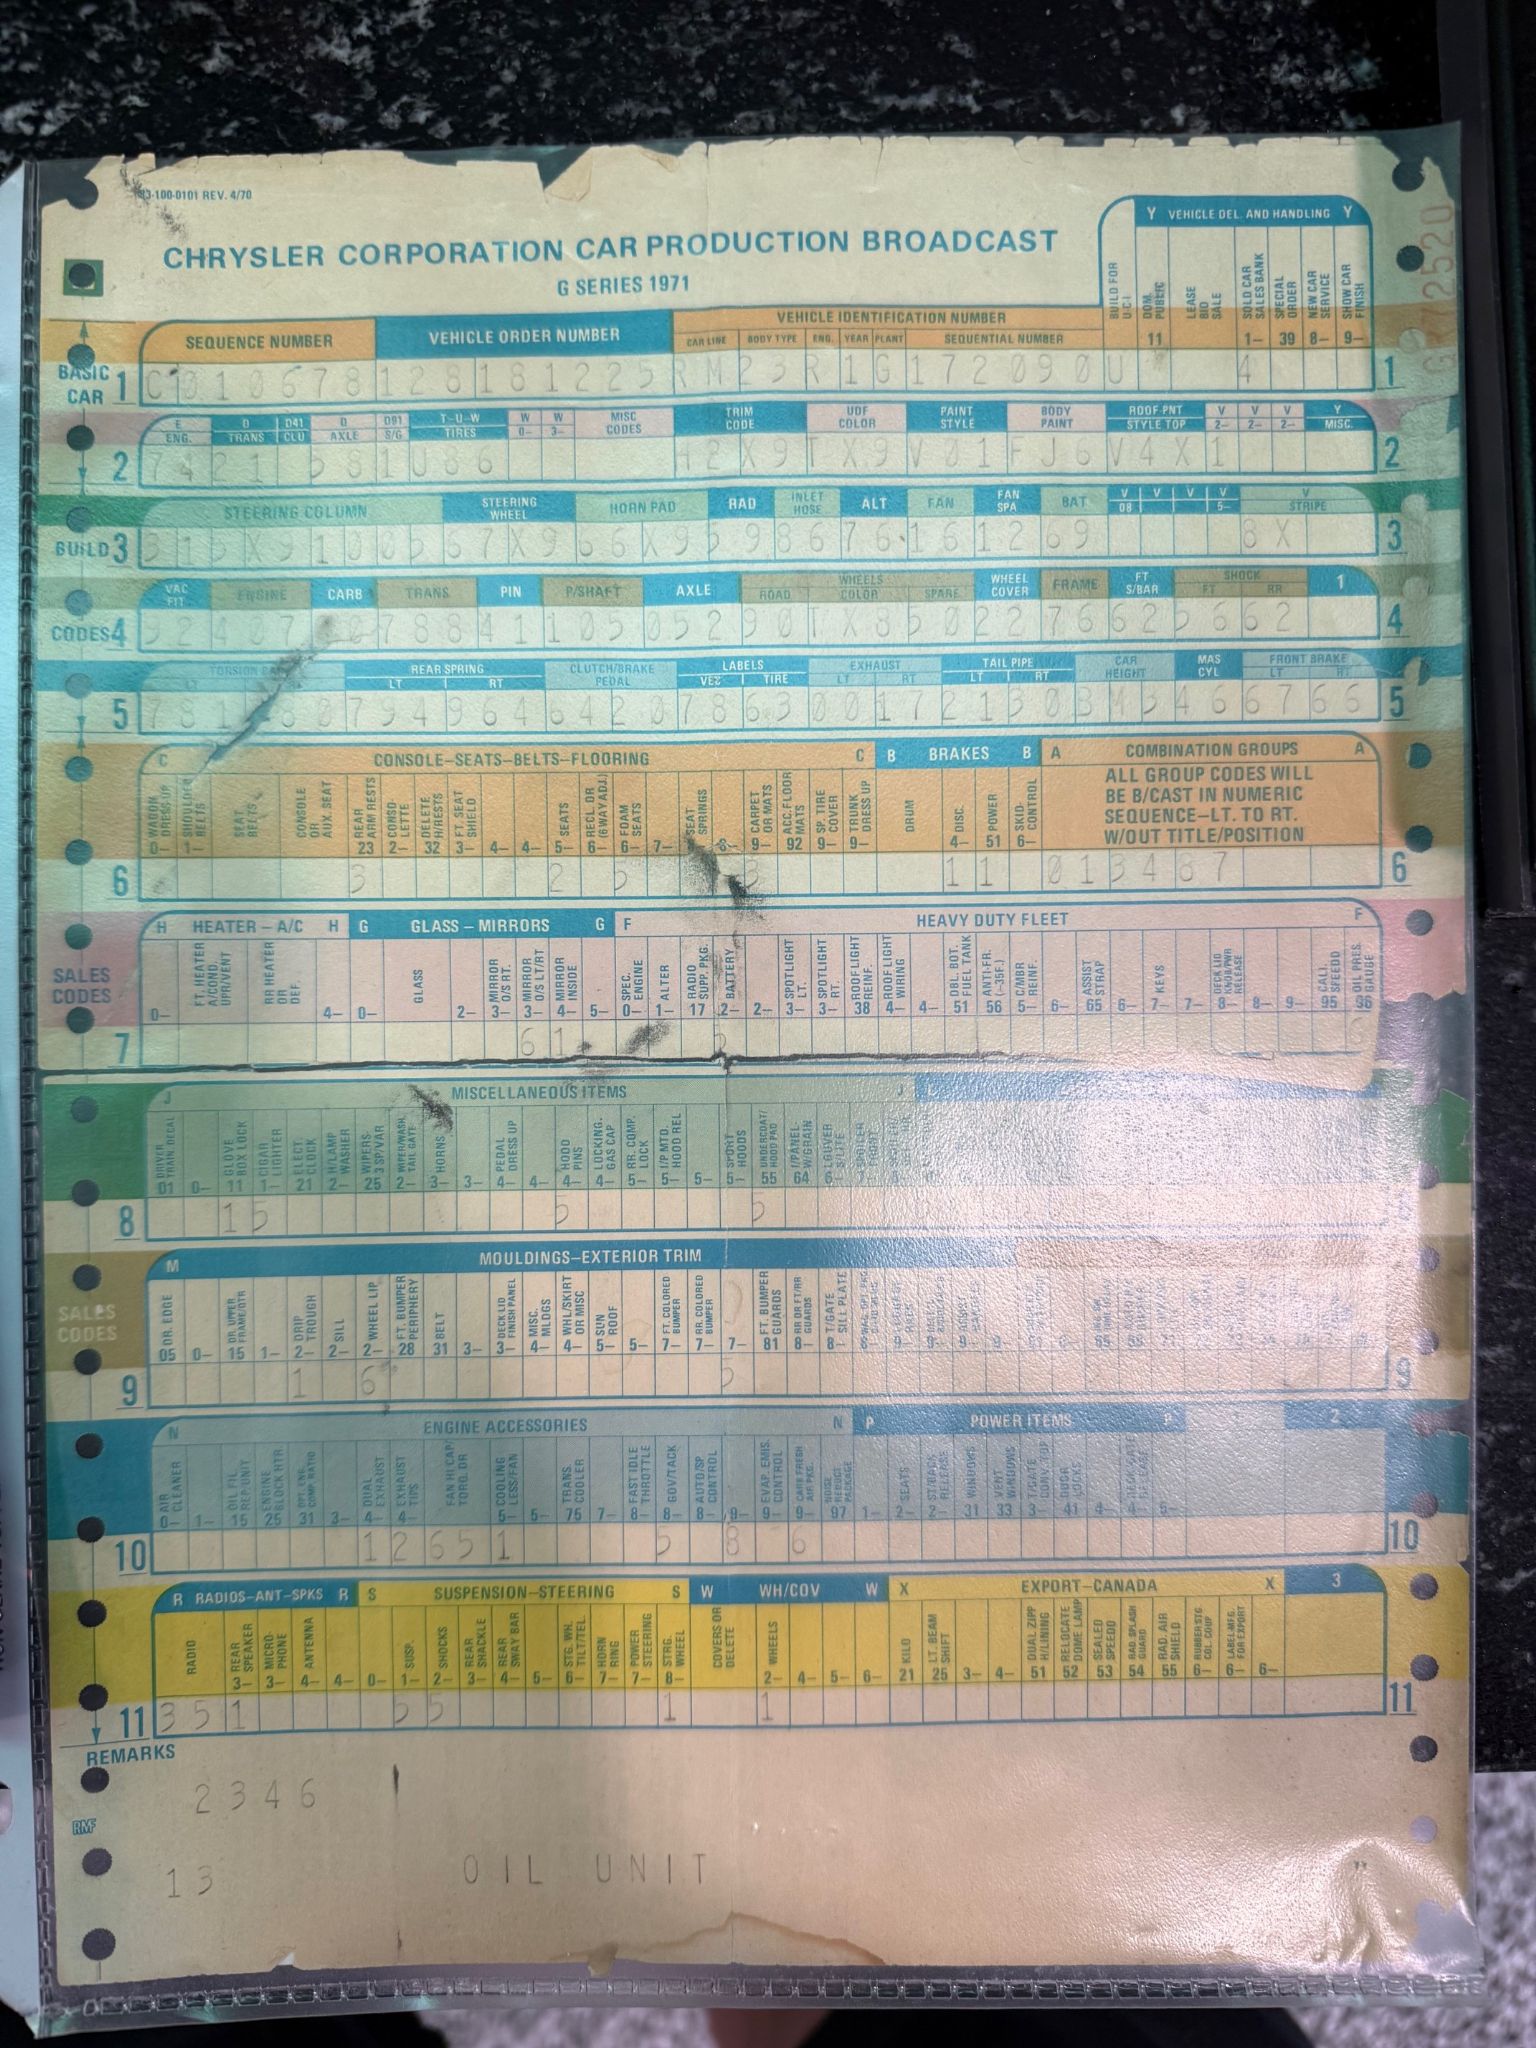 100-0101 REV. 4/70
CHRYSLER CORPORATION CAR PRODUCTION BROADCAST
G SERIES 1971
Y VEHICLE DEL. AND HANDLING Y
BUILD FOR U.C.I DOM. PUBLIC LEASE BID SALE SOLD CAR SALES BANK SPECIAL ORDER NEW CAR SERVICE SHOW CAR FINISH
11 1– 39 8– 9–
SEQUENCE NUMBER VEHICLE ORDER NUMBER VEHICLE IDENTIFICATION NUMBER
CAR LINE BODY TYPE ENG. YEAR PLANT SEQUENTIAL NUMBER
BASIC CAR 1 C 0 1 0 6 7 8 1 2 8 1 8 1 2 2 5 R M 2 3 R 1 G 1 7 2 0 9 0 U 4 1
E ENG. D TRANS D41 CLU D AXLE D91 S/G T–U–W TIRES W 0– W 3– MISC CODES TRIM CODE UDF COLOR PAINT STYLE BODY PAINT ROOF PNT STYLE TOP V 2– V 2– V 2– Y MISC.
2 7 4 2 1 5 8 1 U 8 6 H 2 X 9 T X 9 V 0 1 F J 6 V 4 X 1 2
STEERING COLUMN STEERING WHEEL HORN PAD RAD INLET HOSE ALT FAN FAN SPA BAT V 08 V V V 5– V STRIPE
BUILD 3 3 1 5 X 9 1 0 0 5 6 7 X 9 6 6 X 9 5 9 8 6 7 6 1 6 1 2 6 9 8 X 3
VAC FIT ENGINE CARB TRANS PIN P/SHAFT AXLE WHEELS ROAD COLOR SPARE WHEEL COVER FRAME FT S/BAR SHOCK FT RR 1
CODES 4 5 2 4 0 7 0 7 8 8 4 1 1 0 5 0 5 2 9 0 T X 8 5 0 2 2 7 6 6 2 5 6 6 2 4
REAR SPRING LT RT CLUTCH/BRAKE PEDAL LABELS TIRE EXHAUST LT RT TAIL PIPE LT RT CAR HEIGHT MAS CYL FRONT BRAKE LT RT
5 7 8 1 8 0 7 9 4 9 6 4 6 4 2 0 7 8 6 3 0 0 1 7 2 1 3 0 3 4 6 6 7 6 6 5
C CONSOLE–SEATS–BELTS–FLOORING C B BRAKES B A COMBINATION GROUPS A
WAGON DRESS UP SHOULDER BELTS SEAT BELTS CONSOLE OR AUX. SEAT REAR ARM RESTS CONSOLETTE DELETE H/RESTS FT. SEAT SHIELD SEATS RECL. OR (6WAY ADJ.) FOAM SEATS SEAT SPRINGS CARPET OR MATS ACC. FLOOR MATS SP. TIRE COVER TRUNK DRESS UP DRUM DISC. POWER SKID-CONTROL
ALL GROUP CODES WILL
BE B/CAST IN NUMERIC
SEQUENCE–LT. TO RT.
W/OUT TITLE/POSITION
0– 1– 23 2– 32 3– 4– 4– 5– 6– 6– 7– 9– 92 9– 9– 4– 51 6–
6 3 2 5 3 1 1 0 1 3 4 8 7 6
H HEATER – A/C H G GLASS – MIRRORS G F HEAVY DUTY FLEET F
FT. HEATER A/COND. UPR/VENT RR HEATER OR DEF. GLASS MIRROR O/S RT. MIRROR O/S LT/RT MIRROR INSIDE SPEC. ENGINE ALTER RADIO SUPP. PKG. BATTERY SPOTLIGHT LT. SPOTLIGHT RT. ROOF LIGHT REINF. ROOF LIGHT WIRING DBL. BOT. FUEL TANK ANTI-FR. (–35F.) C/MBR REINF. ASSIST STRAP KEYS DECK LID KNOB/PWR RELEASE CALI. SPEEDO OIL PRES. GAUGE
SALES CODES
0– 4– 0– 2– 3– 3– 4– 5– 0– 1– 17 2– 2– 3– 3– 38 4– 4– 51 56 5– 6– 65 6– 7– 7– 8– 8– 9– 95 96
7 6 1
J MISCELLANEOUS ITEMS J
DRIVER TRAIN. DECAL GLOVE BOX LOCK CIGAR LIGHTER ELECT. CLOCK H/LAMP WASHER WIPERS 3 SP/VAR WIPER/WASH. TAIL GATE HORNS PEDAL DRESS UP HOOD PINS LOCKING GAS CAP RR. COMP. LOCK I/P MTD. HOOD REL SPORT HOODS UNDERCOAT/ HOOD PAD I/PANEL W/GRAIN
01 0– 11 1– 21 2– 25 2– 3– 3– 4– 4– 4– 4– 5– 5– 5– 5– 55 64
8 1 5 5 5
M MOULDINGS–EXTERIOR TRIM
DR. EDGE DR. UPPER FRAME/QTR DRIP TROUGH SILL WHEEL LIP FT. BUMPER PERIPHERY BELT DECK LID FINISH PANEL MISC. MLDGS WHL/SKIRT OR MISC SUN ROOF FT. COLORED BUMPER RR. COLORED BUMPER FT. BUMPER GUARDS RR OR FT/RR GUARDS T/GATE SILL PLATE
SALES CODES
05 0– 15 1– 2– 2– 2– 28 31 3– 3– 4– 4– 5– 5– 7– 7– 7– 81 8– 8–
9 1 6 5 9
N ENGINE ACCESSORIES N P POWER ITEMS P 2
AIR CLEANER OIL FIL. REP/UNIT ENGINE BLOCK HTR OPT. ENG. COMP. RATIO DUAL EXHAUST EXHAUST TIPS FAN HI CAP/ TORQ. DR COOLING LESS/FAN TRANS. COOLER FAST IDLE THROTTLE GOV/TACK AUTO/SP CONTROL EVAP. EMIS. CONTROL CARB FRESH AIR PKG. NOISE REDUCT PACKAGE SEATS ST/BACK RELEASE WINDOWS VENT WINDOWS T/GATE CONV TOP DOOR LOCKS
0– 1– 15 25 31 3– 4– 4– 5– 5– 75 7– 8– 8– 8– 9– 9– 9– 97 1– 2– 2– 31 33 3– 41 4– 4– 5–
10 1 2 6 5 1 5 8 6 10
R RADIOS–ANT–SPKS R S SUSPENSION–STEERING S W WH/COV W X EXPORT–CANADA X 3
RADIO REAR SPEAKER MICRO-PHONE ANTENNA SUSP. SHOCKS REAR SHACKLE REAR SWAY BAR STG. WH. TILT/TEL. HORN RING POWER STEERING STRG. WHEEL COVERS OR DELETE WHEELS KILO LT. BEAM SHIFT DUAL ZIPP H/LINING RELOCATE DOME LAMP SEALED SPEEDO RAD. SPLASH GUARD RAD. AIR SHIELD RUBBER STG. COL. COUP LABEL-MFG. FOR EXPORT
3– 3– 4– 4– 0– 1– 2– 3– 4– 5– 6– 7– 7– 8– 2– 4– 5– 6– 21 25 3– 4– 51 52 53 54 55 6– 6– 6–
11 3 5 1 5 5 1 1 11
REMARKS
2 3 4 6
RMF
1 3 OIL UNIT